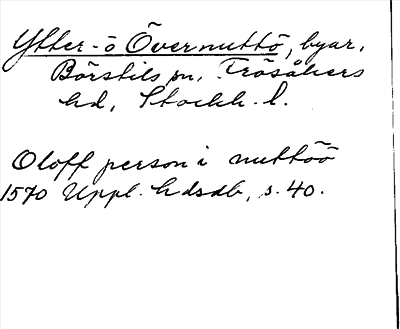 Ytter- o Övernuttö, byar,
Börstils sn, Frösåkers
hd, Stockh. l.
Oloff person i nuttöö
1570 Uppl. hdsdb, s. 40.